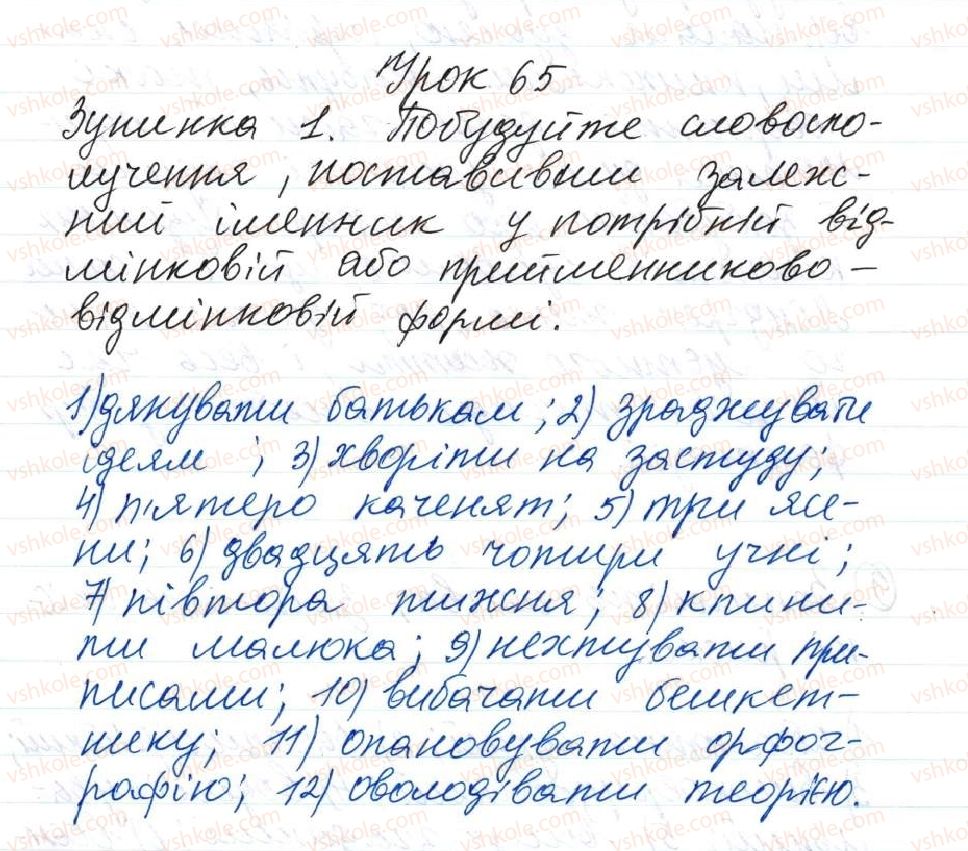 Урок 65
Зупинка 1. Побудуйте словоспо-
лучення, поставивши залеж-
ний іменник у потрібній від-
мінковій або прийменниково-
відмінковій формі.
1) дякувати батькам; 2) зраджувати
ідеям; 3) хворіти на застуду;
4) п'ятеро каченят; 5) три ясе-
ни; 6) двадцять чотири учні;
7) півтора тижня; 8) кпини-
ти малюка; 9) нехтувати при-
писами; 10) вибачати бешкет-
нику; 11) опановувати орфог-
рафію; 12) оволодівати теорією.